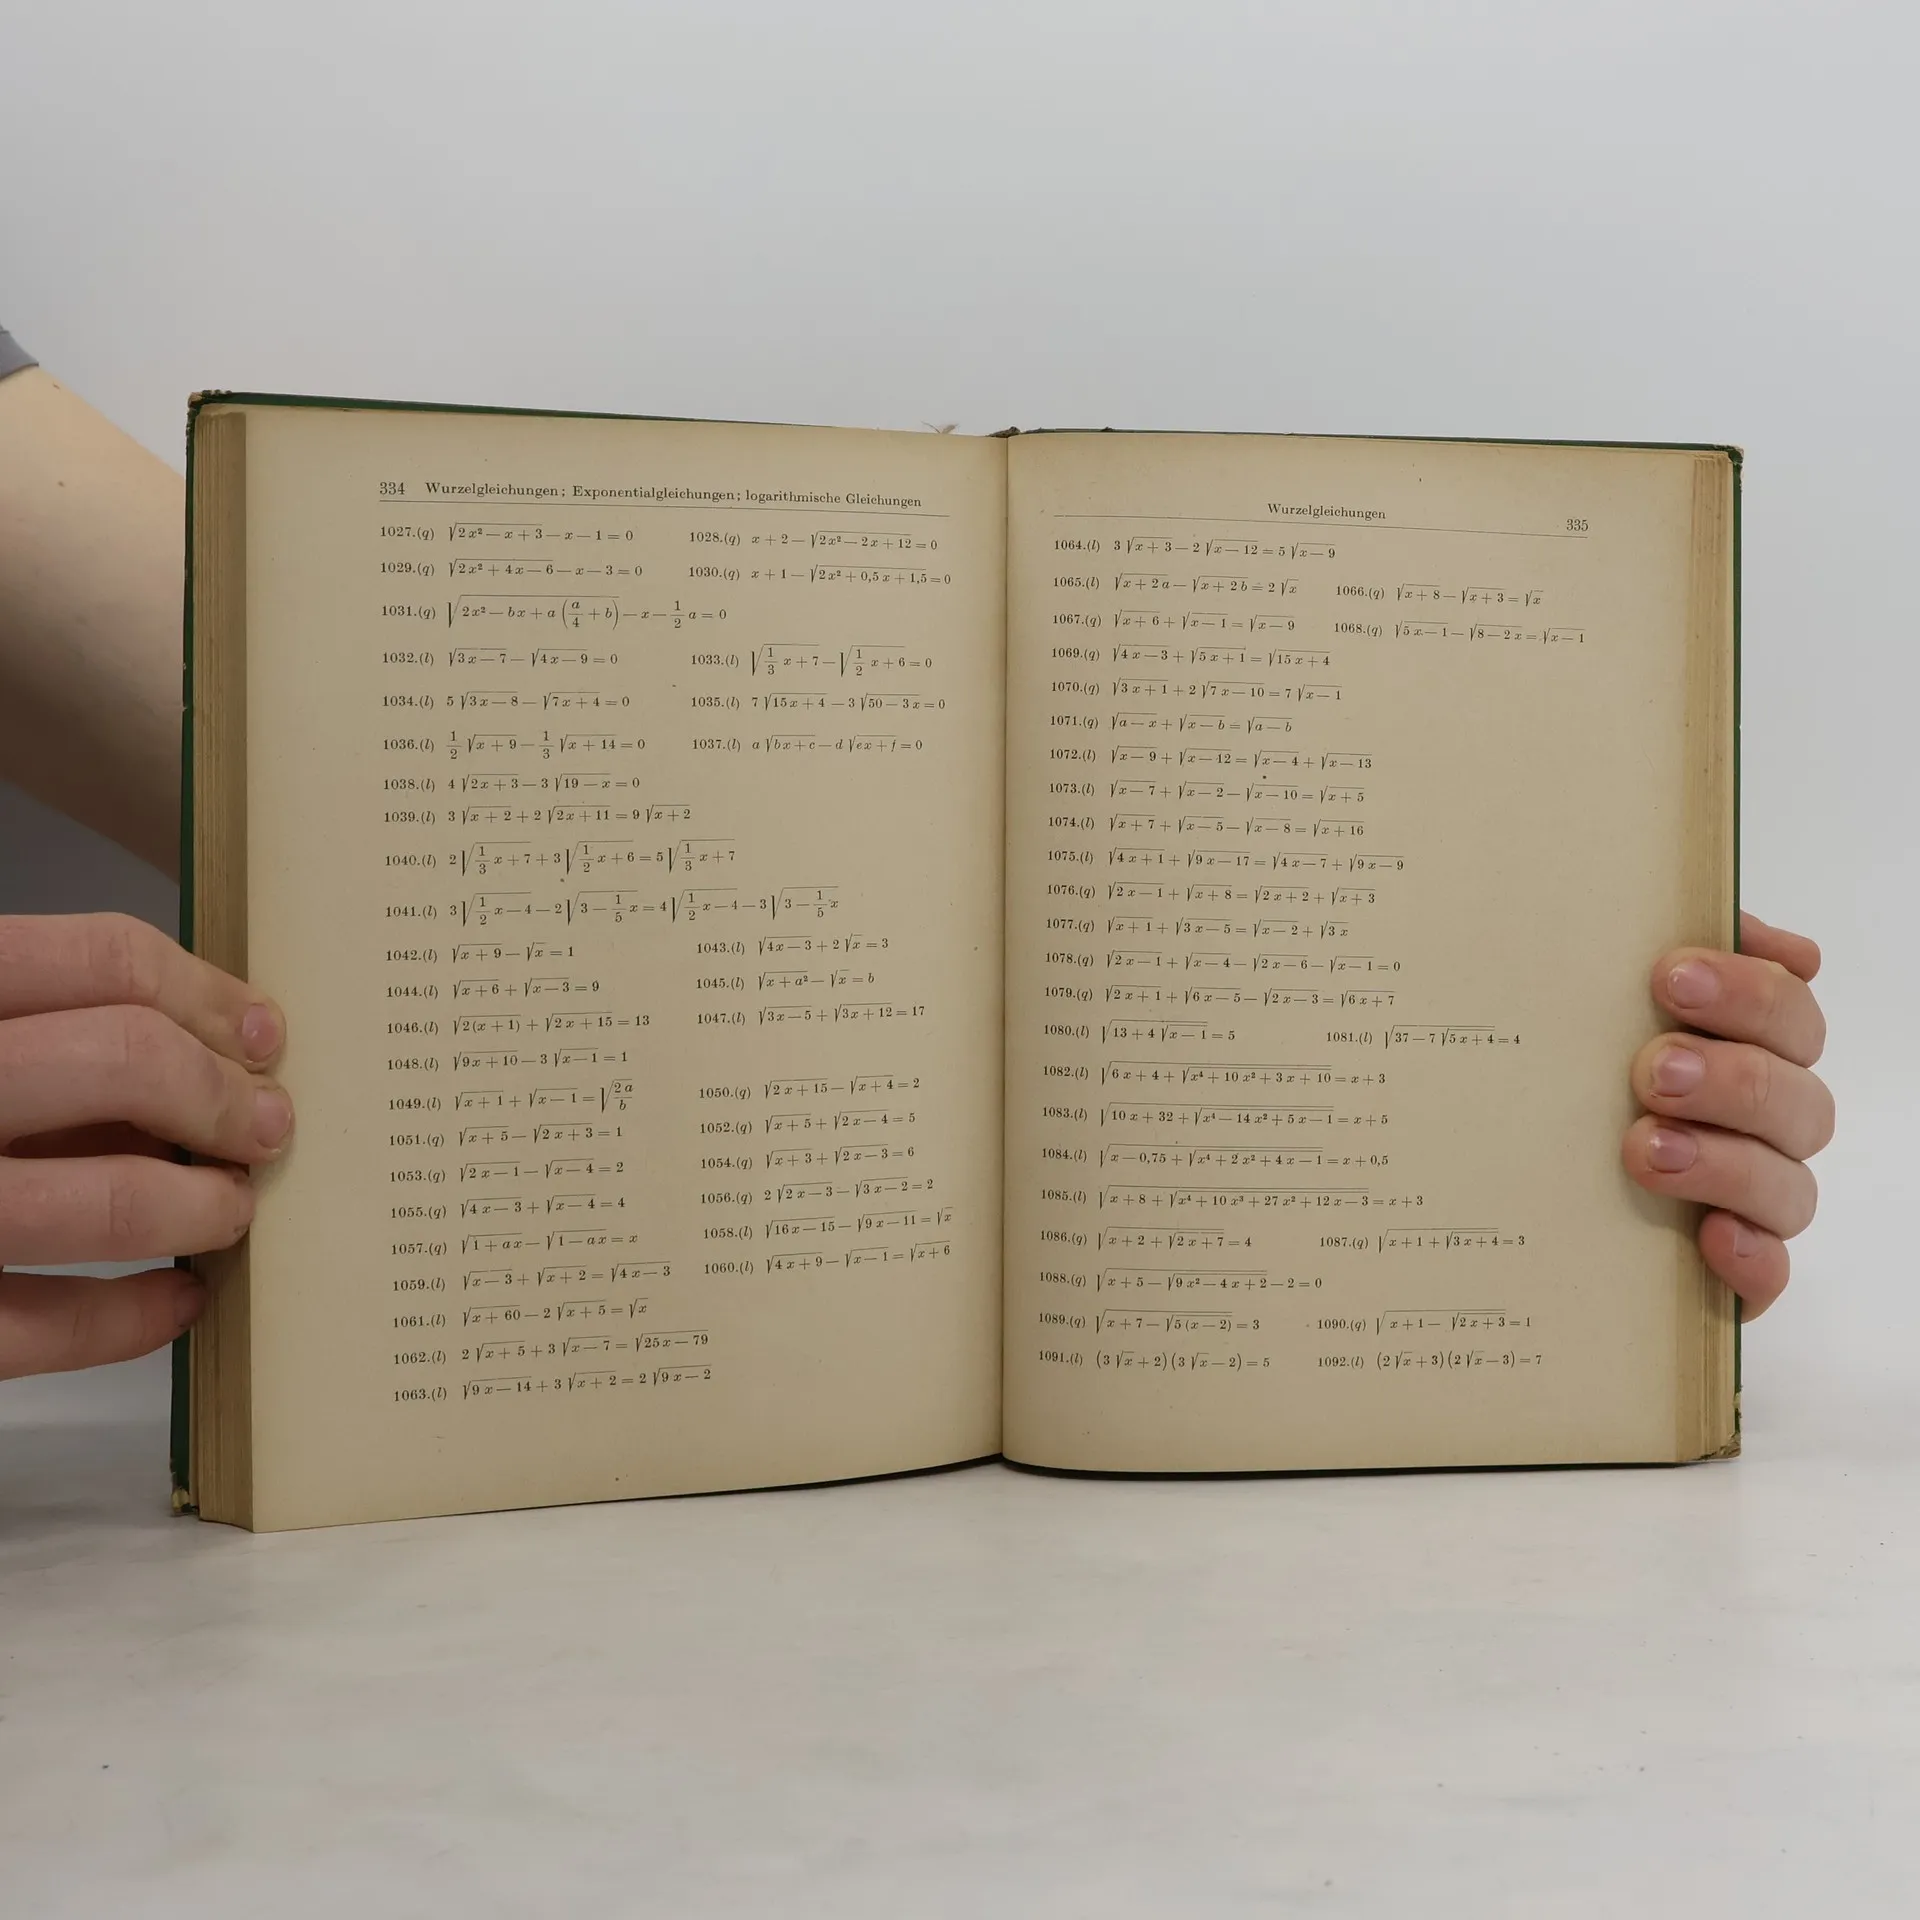 334 Wurzelgleichungen; Exponentialgleichungen; logarithmische Gleichungen
1027.(q) √(2x² — x + 3) — x — 1 = 0 1028.(q) x + 2 — √(2x² — 2x + 12) = 0
1029.(q) √(2x² + 4x — 6) — x — 3 = 0 1030.(q) x + 1 — √(2x² + 0,5x + 1,5) = 0
1031.(q) √(2x² — bx + a (a/4 + b)) — x — 1/2 a = 0
1032.(l) √(3x — 7) — √(4x — 9) = 0 1033.(l) √(1/3 x + 7) — √(1/2 x + 6) = 0
1034.(l) 5 √(3x — 8) — √(7x + 4) = 0 1035.(l) 7 √(15x + 4) — 3 √(50 — 3x) = 0
1036.(l) 1/2 √(x + 9) — 1/3 √(x + 14) = 0 1037.(l) a √(bx + c) — d √(ex + f) = 0
1038.(l) 4 √(2x + 3) — 3 √(19 — x) = 0
1039.(l) 3 √(x + 2) + 2 √(2x + 11) = 9 √(x + 2)
1040.(l) 2 √(1/3 x + 7) + 3 √(1/2 x + 6) = 5 √(1/3 x + 7)
1041.(l) 3 √(1/2 x — 4) — 2 √(3 — 1/5 x) = 4 √(1/2 x — 4) — 3 √(3 — 1/5 x)
1042.(l) √(x + 9) — √x = 1 1043.(l) √(4x — 3) + 2 √x = 3
1044.(l) √(x + 6) + √(x — 3) = 9 1045.(l) √(x + a²) — √x = b
1046.(l) √(2(x + 1)) + √(2x + 15) = 13 1047.(l) √(3x — 5) + √(3x + 12) = 17
1048.(l) √(9x + 10) — 3 √(x — 1) = 1
1049.(l) √(x + 1) + √(x — 1) = √(2a/b) 1050.(q) √(2x + 15) — √(x + 4) = 2
1051.(q) √(x + 5) — √(2x + 3) = 1 1052.(q) √(x + 5) + √(2x — 4) = 5
1053.(q) √(2x — 1) — √(x — 4) = 2 1054.(q) √(x + 3) + √(2x — 3) = 6
1055.(q) √(4x — 3) + √(x — 4) = 4 1056.(q) 2 √(2x — 3) — √(3x — 2) = 2
1057.(q) √(1 + ax) — √(1 — ax) = x 1058.(l) √(16x — 15) — √(9x — 11) = √x
1059.(l) √(x — 3) + √(x + 2) = √(4x — 3) 1060.(l) √(4x + 9) — √(x — 1) = √(x + 6)
1061.(l) √(x + 60) — 2 √(x + 5) = √x
1062.(l) 2 √(x + 5) + 3 √(x — 7) = √(25x — 79)
1063.(l) √(9x — 14) + 3 √(x + 2) = 2 √(9x — 2)
Wurzelgleichungen 335
1064.(l) 3 √(x + 3) — 2 √(x — 12) = 5 √(x — 9)
1065.(l) √(x + 2a) — √(x + 2b) = 2 √x 1066.(q) √(x + 8) — √(x + 3) = √x
1067.(q) √(x + 6) + √(x — 1) = √(x — 9) 1068.(q) √(5x — 1) — √(8 — 2x) = √(x — 1)
1069.(q) √(4x — 3) + √(5x + 1) = √(15x + 4)
1070.(q) √(3x + 1) + 2 √(7x — 10) = 7 √(x — 1)
1071.(q) √(a — x) + √(x — b) = √(a — b)
1072.(l) √(x — 9) + √(x — 12) = √(x — 4) + √(x — 13)
1073.(l) √(x — 7) + √(x — 2) — √(x — 10) = √(x + 5)
1074.(l) √(x + 7) + √(x — 5) — √(x — 8) = √(x + 16)
1075.(l) √(4x + 1) + √(9x — 17) = √(4x — 7) + √(9x — 9)
1076.(q) √(2x — 1) + √(x + 8) = √(2x + 2) + √(x + 3)
1077.(q) √(x + 1) + √(3x — 5) = √(x — 2) + √(3x)
1078.(q) √(2x — 1) + √(x — 4) — √(2x — 6) — √(x — 1) = 0
1079.(q) √(2x + 1) + √(6x — 5) — √(2x — 3) = √(6x + 7)
1080.(l) √(13 + 4 √(x — 1)) = 5 1081.(l) √(37 — 7 √(5x + 4)) = 4
1082.(l) √(6x + 4 + √(x⁴ + 10x² + 3x + 10)) = x + 3
1083.(l) √(10x + 32 + √(x⁴ — 14x² + 5x — 1)) = x + 5
1084.(l) √(x — 0,75 + √(x⁴ + 2x² + 4x — 1)) = x + 0,5
1085.(l) √(x + 8 + √(x⁴ + 10x³ + 27x² + 12x — 3)) = x + 3
1086.(q) √(x + 2 + √(2x + 7)) = 4 1087.(q) √(x + 1 + √(3x + 4)) = 3
1088.(q) √(x + 5 — √(9x² — 4x + 2)) — 2 = 0
1089.(q) √(x + 7 — √(5(x — 2))) = 3 1090.(q) √(x + 1 — √(2x + 3)) = 1
1091.(l) (3 √x + 2) (3 √x — 2) = 5 1092.(l) (2 √x + 3) (2 √x — 3) = 7